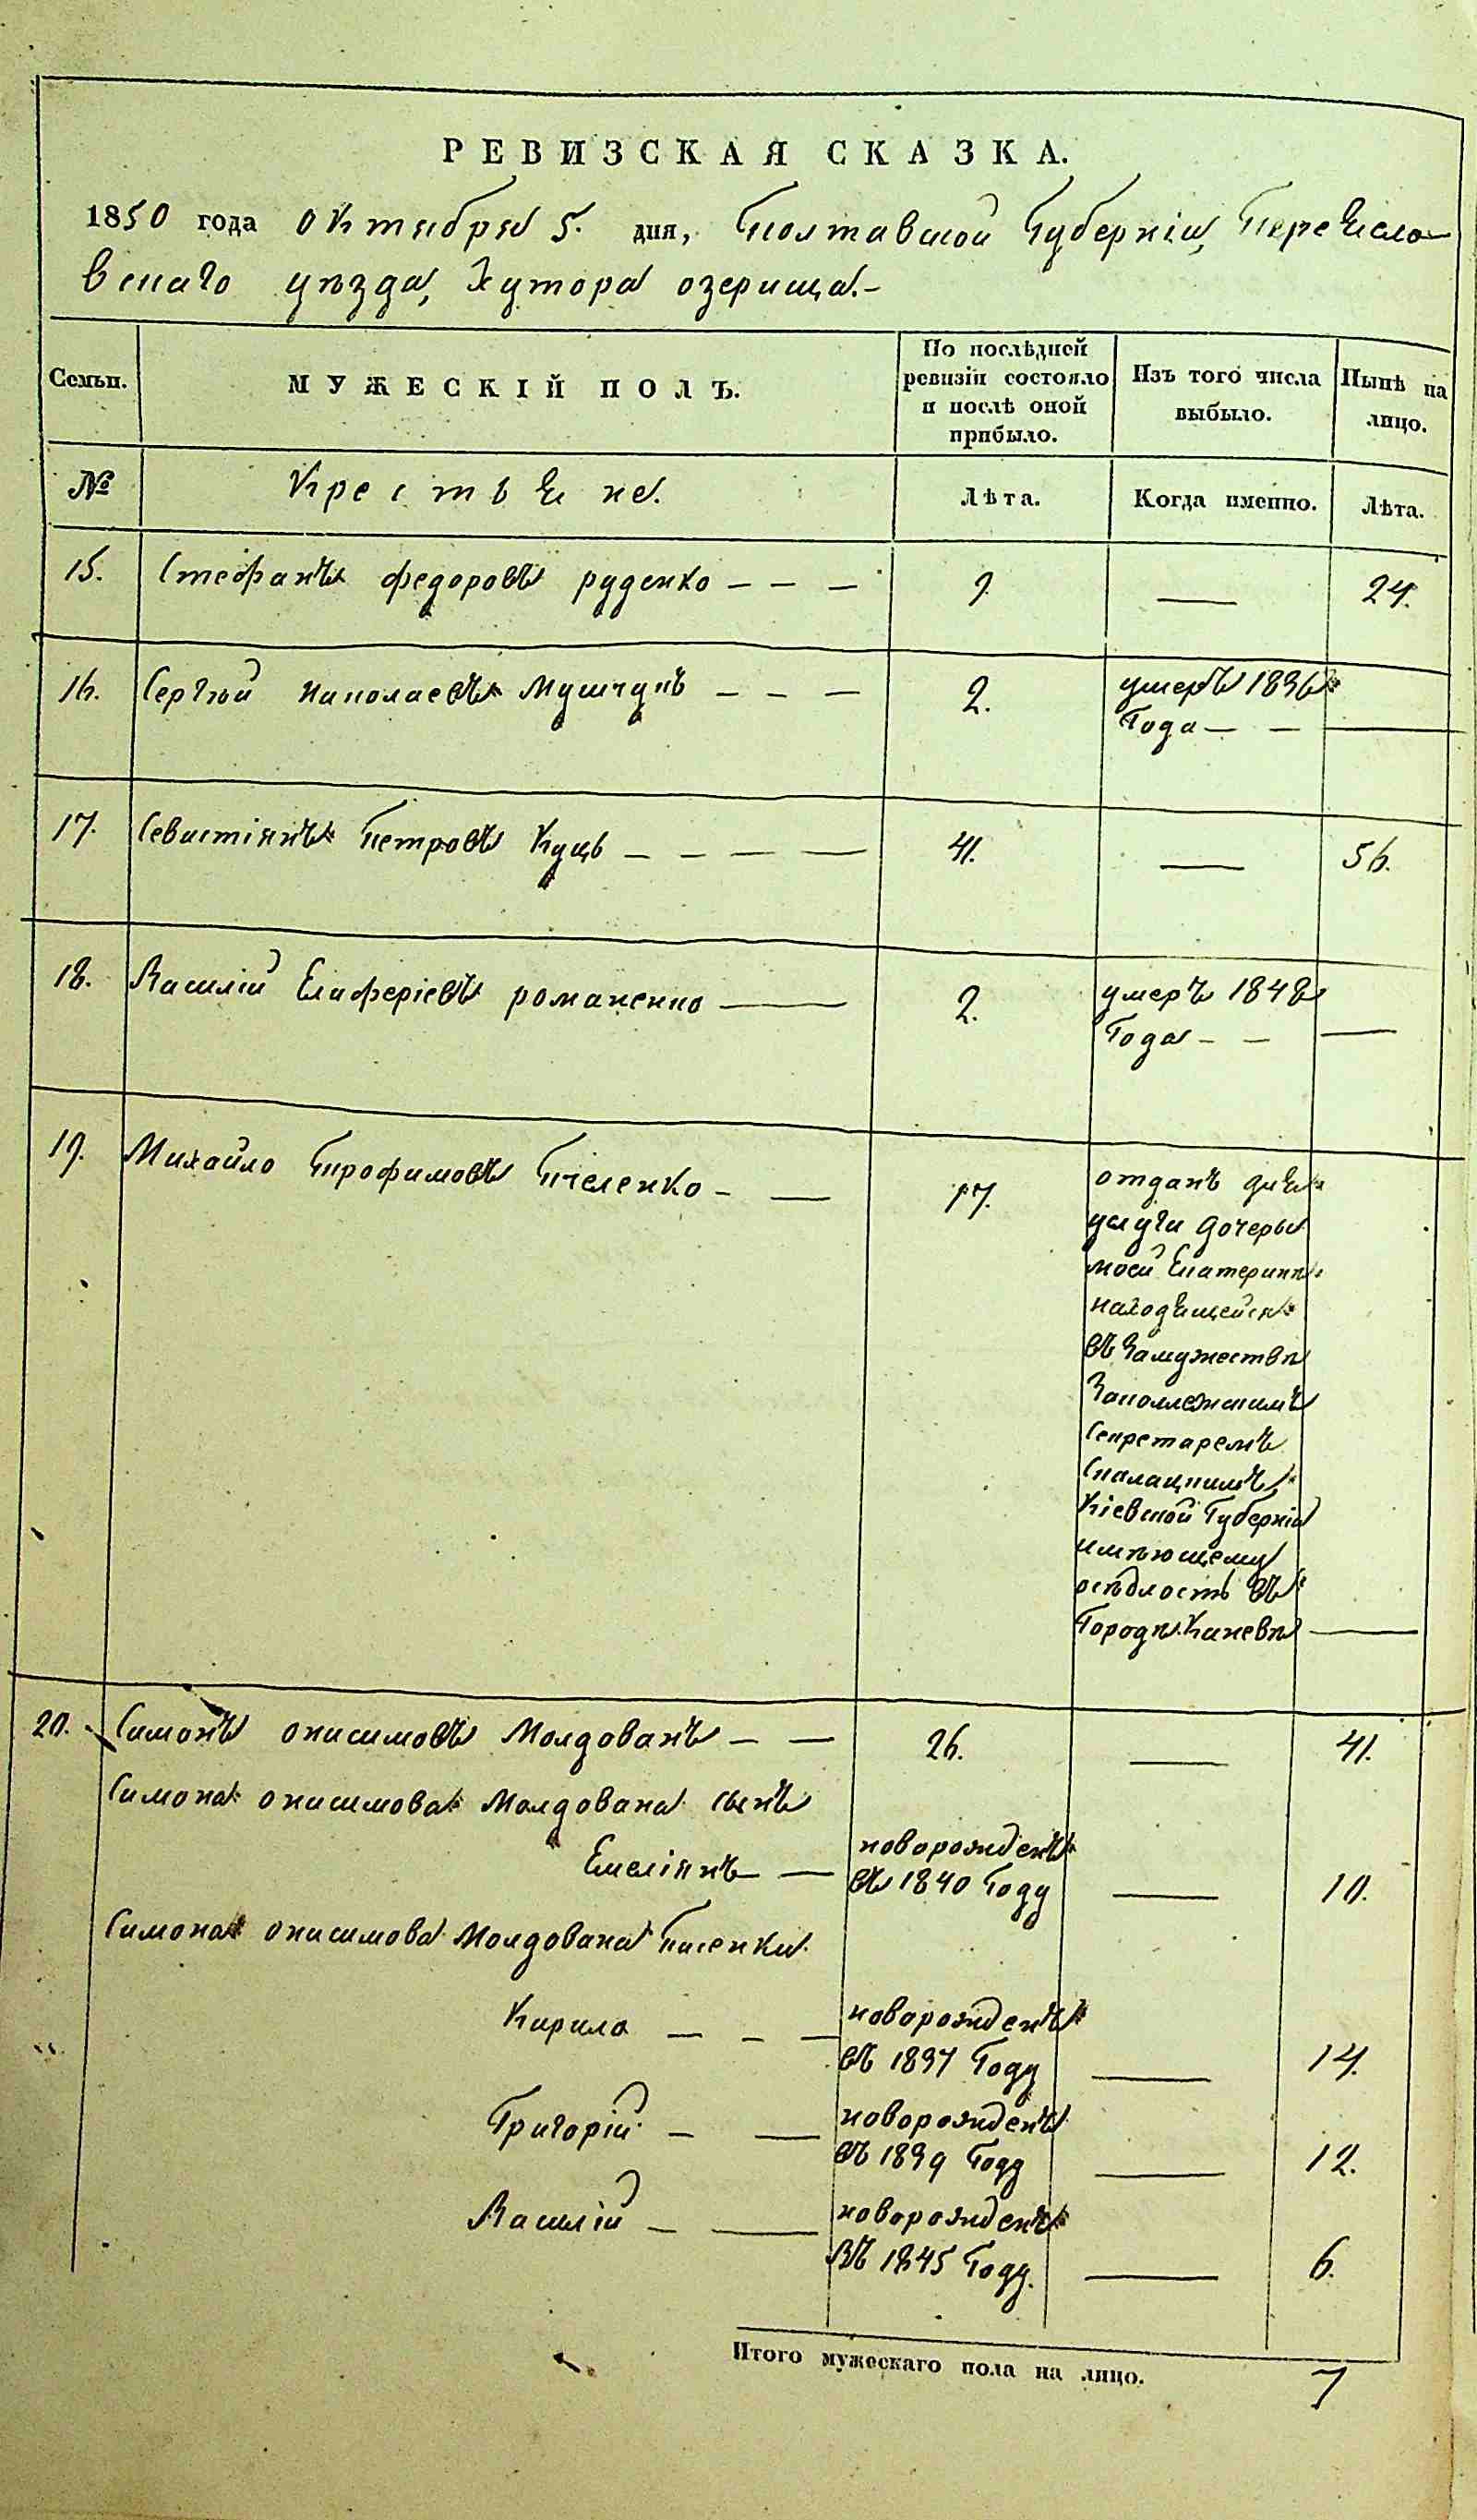 РЕВИЗСКАЯ СКАЗКА.
1850 года октября 5. дня, Полтавской Губерніи, Переясло-
вскаго уѣзда, Хутора озерища.-
Семьи.
МУЖЕСКІЙ ПОЛЪ.
По послѣдней
ревизіи состояло
и послѣ оной
прибыло.
Изъ того числа
выбыло.
Нынѣ на
лицо.
№ Крестьяне. Лѣта. Когда именно. Лѣта.
15. Стефанъ федоровъ руденко — — — 9. — 24.
16. Сергѣй николаевъ — — — 2. умеръ 1836
Года — —
17. Севастіянъ Петровъ Куць — — — — 41. — 56.
18. Василій Елиферіевъ романенко — 2. умеръ 1848
Года — — —
19. Михайло Трофимовъ Пчеленко — — 17. отданъ для
услуги дочеры
моей Екатерины
находящейся
въ Замужествѣ
За
Секретаремъ
Кіевской Губерніи
имѣющему
осѣдлость въ
Городѣ Каневѣ —
20. Симонъ онисимовъ Молдованъ — — 26. — 41.
Симона онисимова Молдована сынъ
Емеліянъ — новорожденъ
въ 1840 Году — 10.
Симона онисимова Молдована Пасенки
Кирило — — — новорожденъ
въ 1837 Году — 14.
Григорій — — новорожденъ
въ 1839 Году — 12.
Василій — — новорожденъ
въ 1845 Году. — 6.
Итого мужескаго пола на лицо. 7